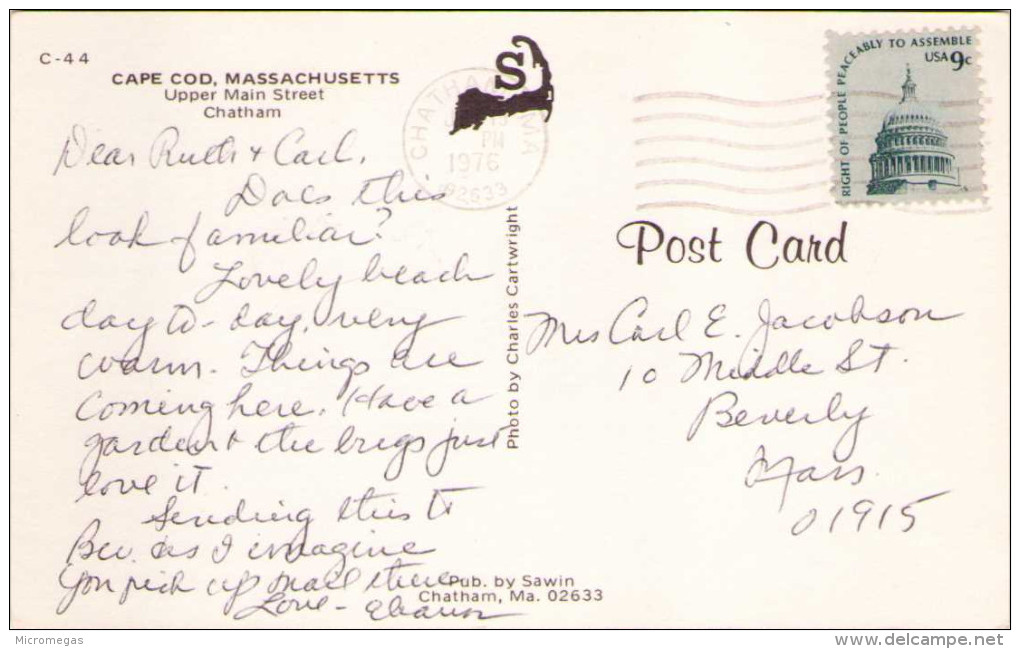 C-44
CAPE COD, MASSACHUSETTS
Upper Main Street
Chatham
Dear Ruth & Carl,
Does this
look familiar?
Lovely beach
day to-day, very
warm. Things are
coming here. Have a
garden & the bugs just
love it.
Sending this to
Bev. as I imagine
you pick up mail there
Love - Eleanor
S
CHATHAM MA
PM
1976
02633
Photo by Charles Cartwright
Pub. by Sawin
Chatham, Ma. 02633
RIGHT OF PEOPLE PEACEABLY TO ASSEMBLE
USA 9c
Post Card
Mrs Carl E. Jacobson
10 Middle St.
Beverly
Mass.
01915
Micromegas
www.delcampe.net